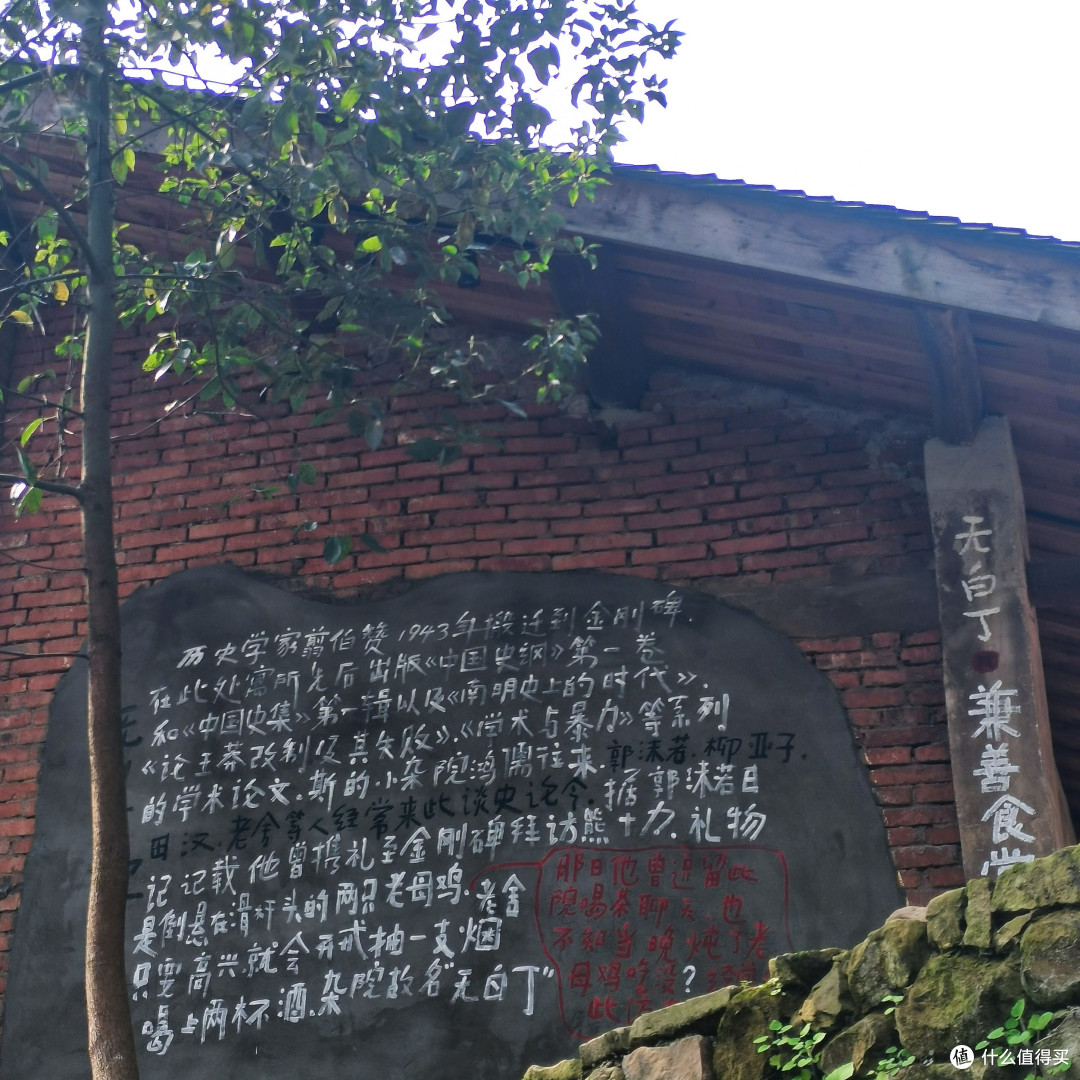 历史学家翦伯赞1943年搬迁到金刚碑.
在此处寓所先后出版《中国史纲》第一卷
和《中国史集》第一辑以及《南明史上的时代》.
《论王莽改制及其失败》.《学术与暴力》等系列
的学术论文.斯的.小杂院鸿儒往来.郭沫若.柳亚子.
田汉.老舍等人经常来此谈史论今.据郭沫若日
记记载他曾携礼至金刚碑拜访熊十力.礼物
是倒悬在滑杆头的两只老母鸡.老舍
只要高兴.就会开戒抽一支烟
喝上两杯酒.杂院故名"无白丁"
那日他曾逗留此
院喝茶聊天.也
不知当晚炖了老
母鸡吃没?
此
无白丁
兼善食堂
值 什么值得买